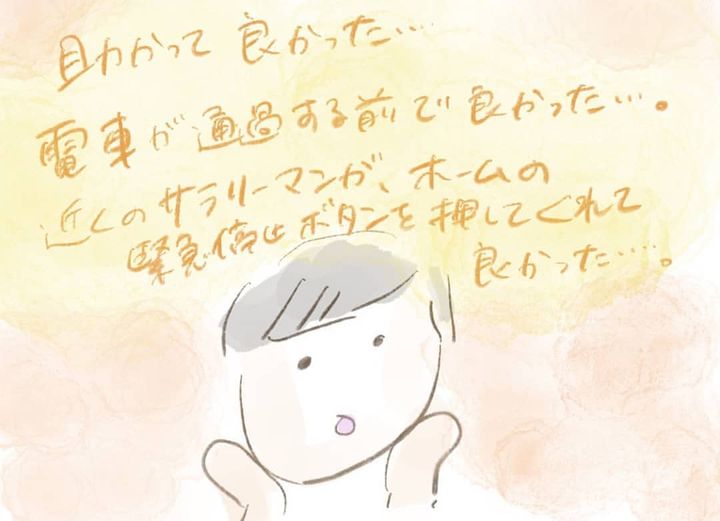 助かって 良かった…
電車が通過する前で良かった…。
近くのサラリーマンが、ホームの
緊急停止ボタンを押してくれて
良かった……。